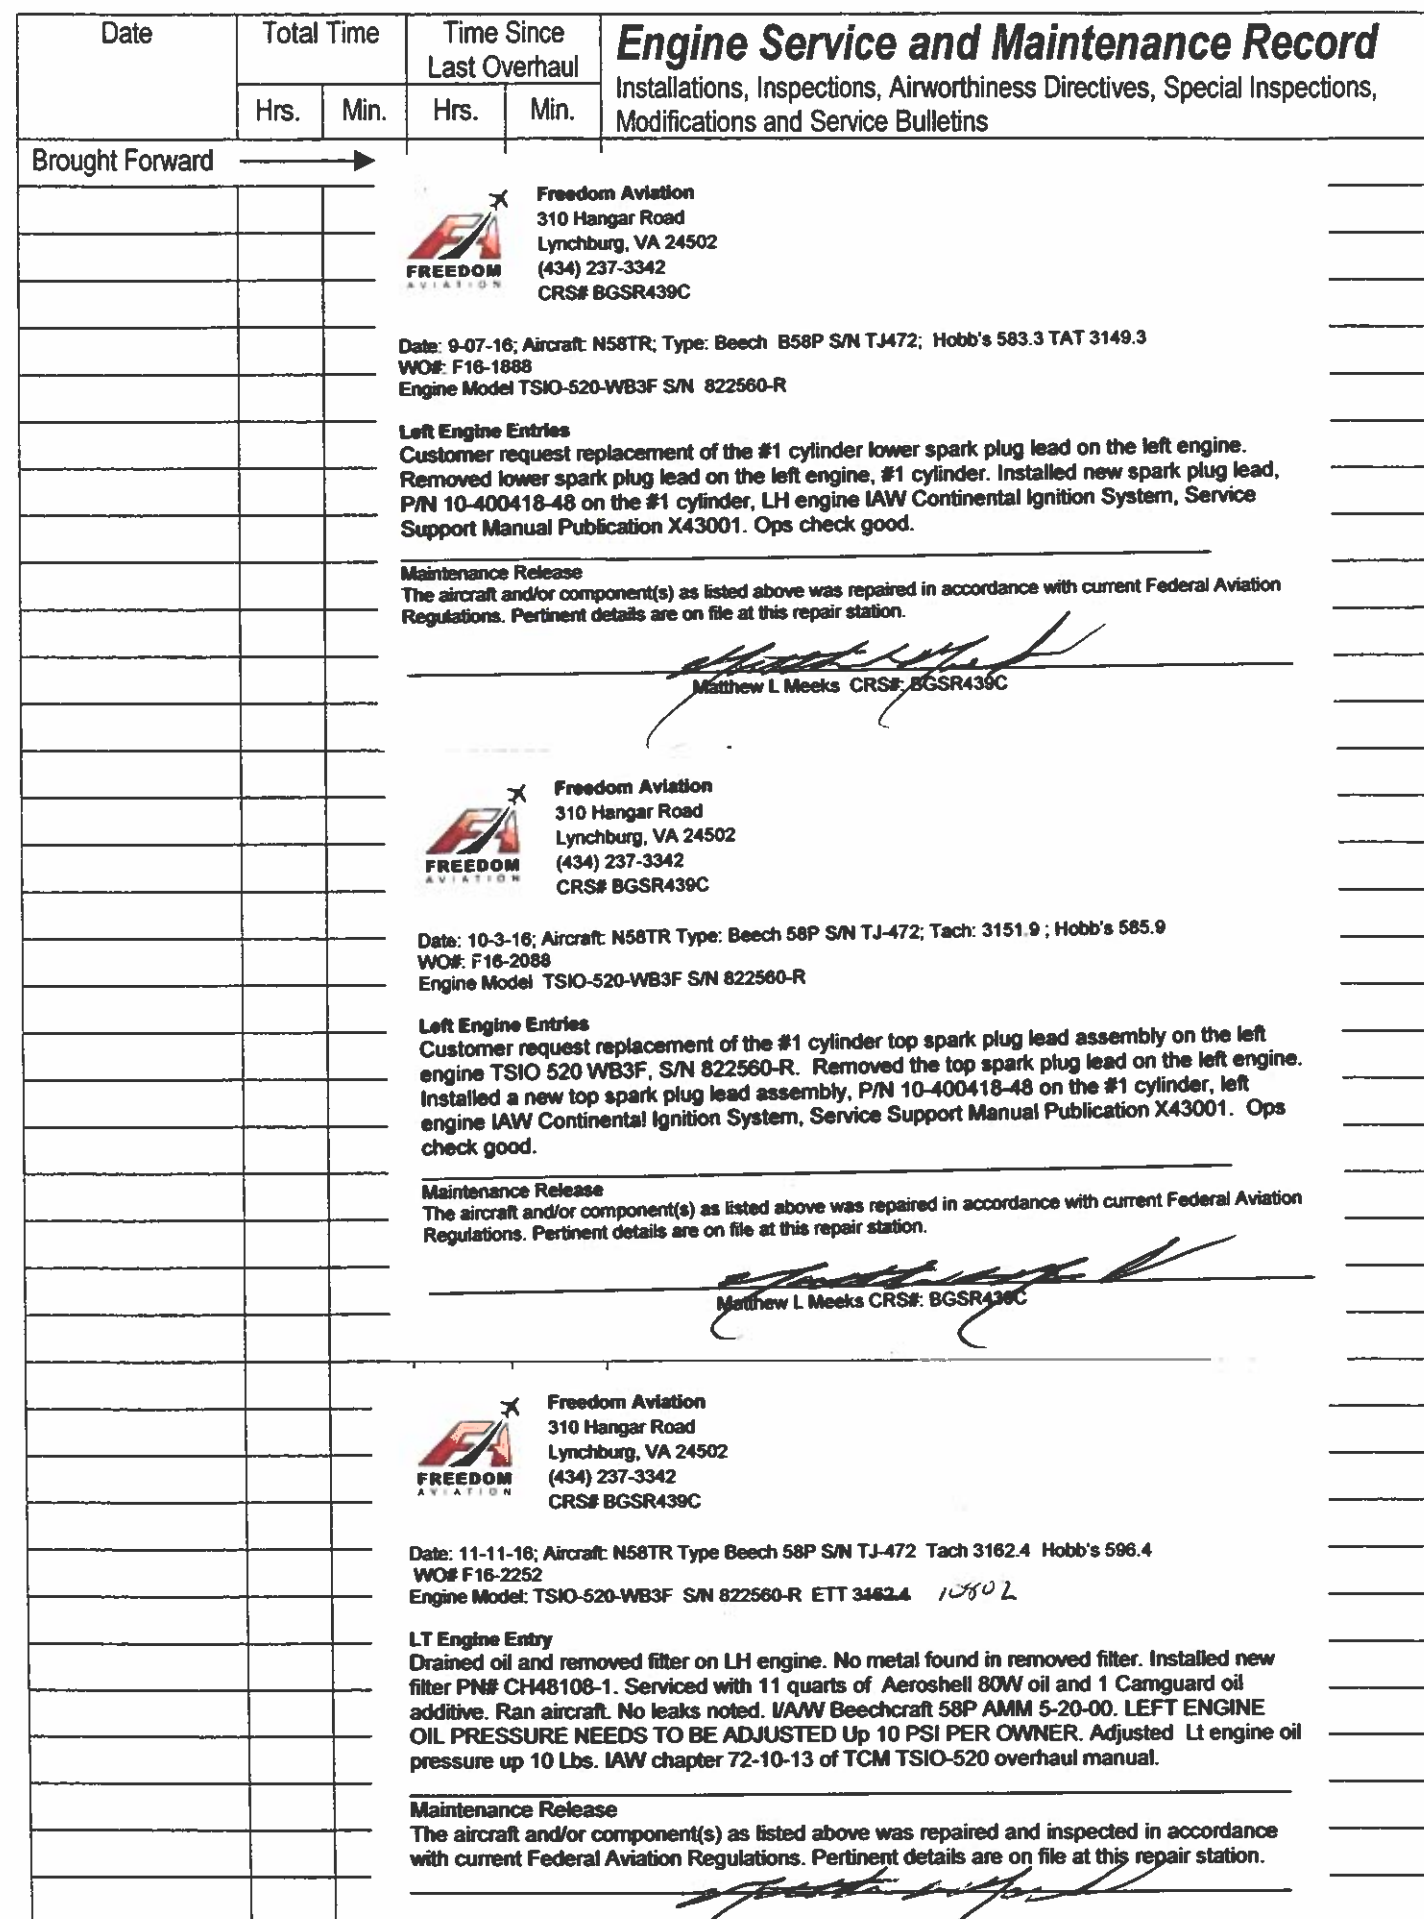 Date
Total Time
Time Since
Last Overhaul
Hrs.
Min.
Hrs.
Min.
Engine Service and Maintenance Record
Installations, Inspections, Airworthiness Directives, Special Inspections,
Modifications and Service Bulletins
Brought Forward
FREEDOM
AVIATION
Freedom Aviation
310 Hangar Road
Lynchburg, VA 24502
(434) 237-3342
CRS# BGSR439C
Date: 9-07-16; Aircraft: N58TR; Type: Beech B58P S/N TJ472; Hobb's 583.3 TAT 3149.3
WO#: F16-1888
Engine Model TSIO-520-WB3F S/N 822560-R
Left Engine Entries
Customer request replacement of the #1 cylinder lower spark plug lead on the left engine.
Removed lower spark plug lead on the left engine, #1 cylinder. Installed new spark plug lead,
P/N 10-400418-48 on the #1 cylinder, LH engine IAW Continental Ignition System, Service
Support Manual Publication X43001. Ops check good.
Maintenance Release
The aircraft and/or component(s) as listed above was repaired in accordance with current Federal Aviation
Regulations. Pertinent details are on file at this repair station.
Matthew L Meeks CRS#: BGSR439C
FREEDOM
AVIATION
Freedom Aviation
310 Hangar Road
Lynchburg, VA 24502
(434) 237-3342
CRS# BGSR439C
Date: 10-3-16; Aircraft: N58TR Type: Beech 58P S/N TJ-472; Tach: 3151.9 ; Hobb's 585.9
WO#: F16-2088
Engine Model TSIO-520-WB3F S/N 822560-R
Left Engine Entries
Customer request replacement of the #1 cylinder top spark plug lead assembly on the left
engine TSIO 520 WB3F, S/N 822560-R. Removed the top spark plug lead on the left engine.
Installed a new top spark plug lead assembly, P/N 10-400418-48 on the #1 cylinder, left
engine IAW Continental Ignition System, Service Support Manual Publication X43001. Ops
check good.
Maintenance Release
The aircraft and/or component(s) as listed above was repaired in accordance with current Federal Aviation
Regulations. Pertinent details are on file at this repair station.
Matthew L Meeks CRS#: BGSR439C
FREEDOM
AVIATION
Freedom Aviation
310 Hangar Road
Lynchburg, VA 24502
(434) 237-3342
CRS# BGSR439C
Date: 11-11-16; Aircraft: N58TR Type Beech 58P S/N TJ-472 Tach 3162.4 Hobb's 596.4
WO# F16-2252
Engine Model: TSIO-520-WB3F S/N 822560-R ETT 3162.4
LT Engine Entry
Drained oil and removed filter on LH engine. No metal found in removed filter. Installed new
filter PN# CH48108-1. Serviced with 11 quarts of Aeroshell 80W oil and 1 Camguard oil
additive. Ran aircraft. No leaks noted. I/A/W Beechcraft 58P AMM 5-20-00. LEFT ENGINE
OIL PRESSURE NEEDS TO BE ADJUSTED Up 10 PSI PER OWNER. Adjusted Lt engine oil
pressure up 10 Lbs. IAW chapter 72-10-13 of TCM TSIO-520 overhaul manual.
Maintenance Release
The aircraft and/or component(s) as listed above was repaired and inspected in accordance
with current Federal Aviation Regulations. Pertinent details are on file at this repair station.